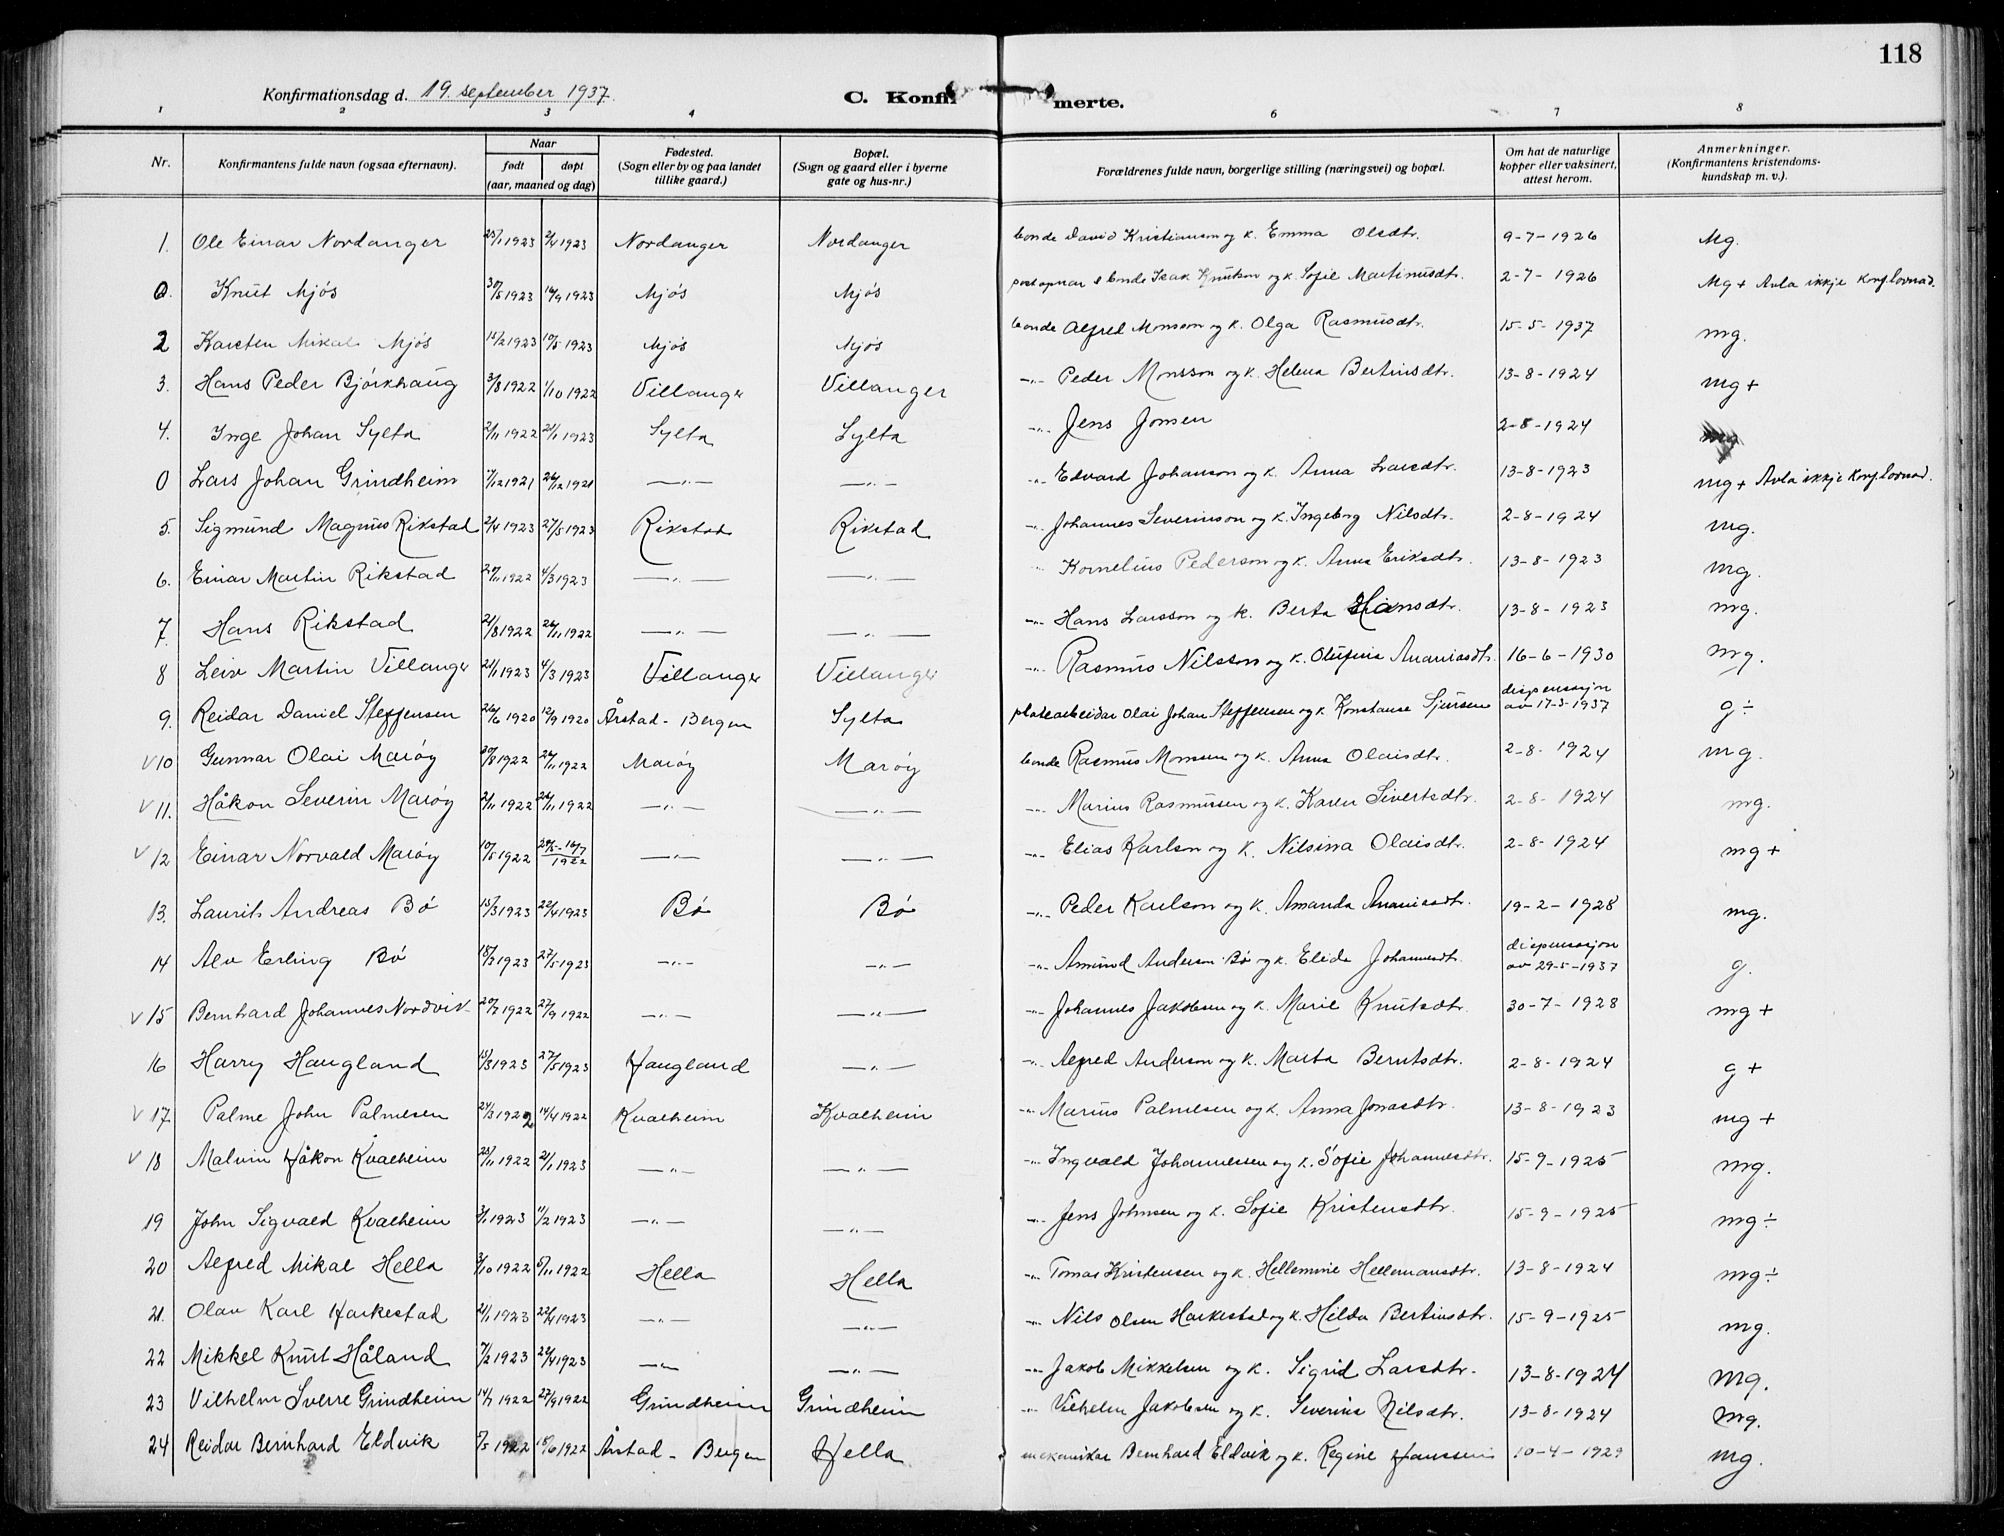 118
Konfirmationsdag d. 19. september 1937.
C. Konfir merte.
1 2 3 4 6 7 8
Nr. Konfirmantens fulde navn (ogsaa efternavn). Naar født døpt (aar, maaned og dag) Fødested. (Sogn eller by og paa landet tillike gaard.) Bopæl. (Sogn og gaard eller i byerne gate og hus-nr.) Forældrenes fulde navn, borgerlige stilling (næringsvei) og bopæl. Om hat de naturlige kopper eller vaksinert, attest herom. Anmerkninger. (Konfirmantens kristendoms-kundskap m. v.).
1. Ole Einar Nordanger 25/1 1923 2/4 1923 Nordanger Nordanger bonde David Kristianson og k. Emma Olsdtr. 9-7-1926 Mg.
0. Knut Mjøs 30/5 1923 16/9 1923 Mjøs Mjøs postopnar & bonde Isak Knutson og k. Sofie Martinusdtr. 2-7-1926 Mg+ Avla ikkje konf.lovnad.
2 Karsten Mikal Mjøs 15/2 1923 10/5 1923 Mjøs Mjøs bonde Alfred Monsson og k. Olga Rasmusdtr. 15-5-1937 mg.
3. Hans Peder Bjørkhaug 3/8 1922 1/10 1922 Villanger Villanger -"- Peder Monsson og k. Helena Bertinsdtr. 13-8-1924 mg+
4. Inge Johan Sylta 2/11 1922 21/1 1923 Sylta Sylta -"- Jens Jonsen 2-8-1924
0 Lars Johan Grindheim 7/12 1921 26/12 1921 -"- -"- -"- Edvard Johanson og k. Anna Larsdtr. 13-8-1923 mg+ Avla ikkje konf.lovnad.
5. Sigmund Magnus Rikstad 2/4 1923 27/5 1923 Rikstad Rikstad -"- Johannes Severinson og k. Ingeborg Nilsdtr. 2-8-1924 mg.
6. Einar Martin Rikstad 29/11 1922 4/3 1923 -"- -"- -"- Kornelius Pederson og k. Anna Eriksdtr. 13-8-1923 mg.
7. Hans Rikstad 21/8 1922 26/11 1922 -"- -"- -"- Hans Larsson og k. Berta Hansdtr. 13-8-1923 mg.
8 Leiv Martin Villanger 21/1 1923 4/3 1923 Villanger Villanger -"- Rasmus Nilsson og k. Olufina Ananiasdtr. 16-6-1930 mg.
9. Reidar Daniel Steffensen 26/6 1920 12/9 1920 Årstad - Bergen Sylta platearbeidar Olai Johan Steffensen og k. Konstanse Sjursen dispensasjon av 17-3-1937 g÷
v 10 Gunnar Olai Marøy 30/8 1922 26/11 1922 Marøy Marøy bonde Rasmus Monsen og k. Anna Olaisdtr. 2-8-1924 mg.
v 11. Håkon Severin Marøy 2/11 1922 26/11 1922 -"- -"- -"- Marius Rasmussen og k. Karen Sivertsdtr. 2-8-1924 mg.
v 12 Einar Norvald Marøy 10/5 1922 28/5-16/7 1922 -"- -"- -"- Elias Karlson og k. Nilsina Olaisdtr. 2-8-1924 mg+
13. Laurits Andreas Bø 15/3 1923 22/4 1923 Bø Bø -"- Peder Karlson og k. Amanda Ananiasdtr. 19-2-1928 mg.
14 Alv Erling Bø 18/2 1923 27/5 1923 -"- -"- -"- Amund Anderson Bø og k. Elida Johannesdtr. dispensasjon av 29-5-1937 g.
v 15 Bernhard Johannes Nordvik 20/7 1922 27/9 1922 -"- -"- -"- Johannes Jakobsen og k. Marie Knutsdtr. 30-7-1928 mg+
16 Harry Haugland 15/3 1923 27/5 1923 Haugland -"- -"- Alfred Anderson og k. Marta Berntsdtr. 2-8-1924 g+
v 17. Palme John Palmesen 24/3 1922 14/4 1922 Kvalheim Kvalheim -"- Marius Palmesen og k. Anna Jonasdtr. 13-8-1923 mg+
v 18 Malvin Håkon Kvalheim 25/11 1922 21/1 1923 -"- -"- -"- Ingvald Johannessen og k. Sofie Johannesdtr. 15-9-1925 mg.
19 John Sigvald Kvalheim 3/1 1923 11/2 1923 -"- -"- -"- Jens Johnsen og k. Sofie Kristensdtr. 15-9-1925 mg÷
20 Alfred Mikal Hella 3/10 1922 5/11 1922 Hella Hella -"- Tomas Kristensen og k. Hellemine Hellemansdtr. 13-8-1924 mg÷
21. Olav Karl Harkestad 21/1 1923 22/4 1923 -"- -"- -"- Nils Olsen Harkestad og k. Hilda Bertinsdtr. 15-9-1925 mg.
22 Mikkel Knut Håland 7/2 1923 22/4 1923 -"- -"- -"- Jakob Mikkelsen og k. Sigrid Larsdtr. 13-8-1924 mg.
23 Vilhelm Sverre Grindheim 14/7 1922 27/9 1922 Grindheim Grindheim -"- Vilhelm Jakobsen og k. Severine Nilsdtr. 13-8-1924 mg.
24 Reidar Bernhard Eldvik 7/5 1922 18/6 1922 Årstad - Bergen Hella mekanikar Bernhard Eldvik og k. Regine Hanssen 10-4-1929 mg.